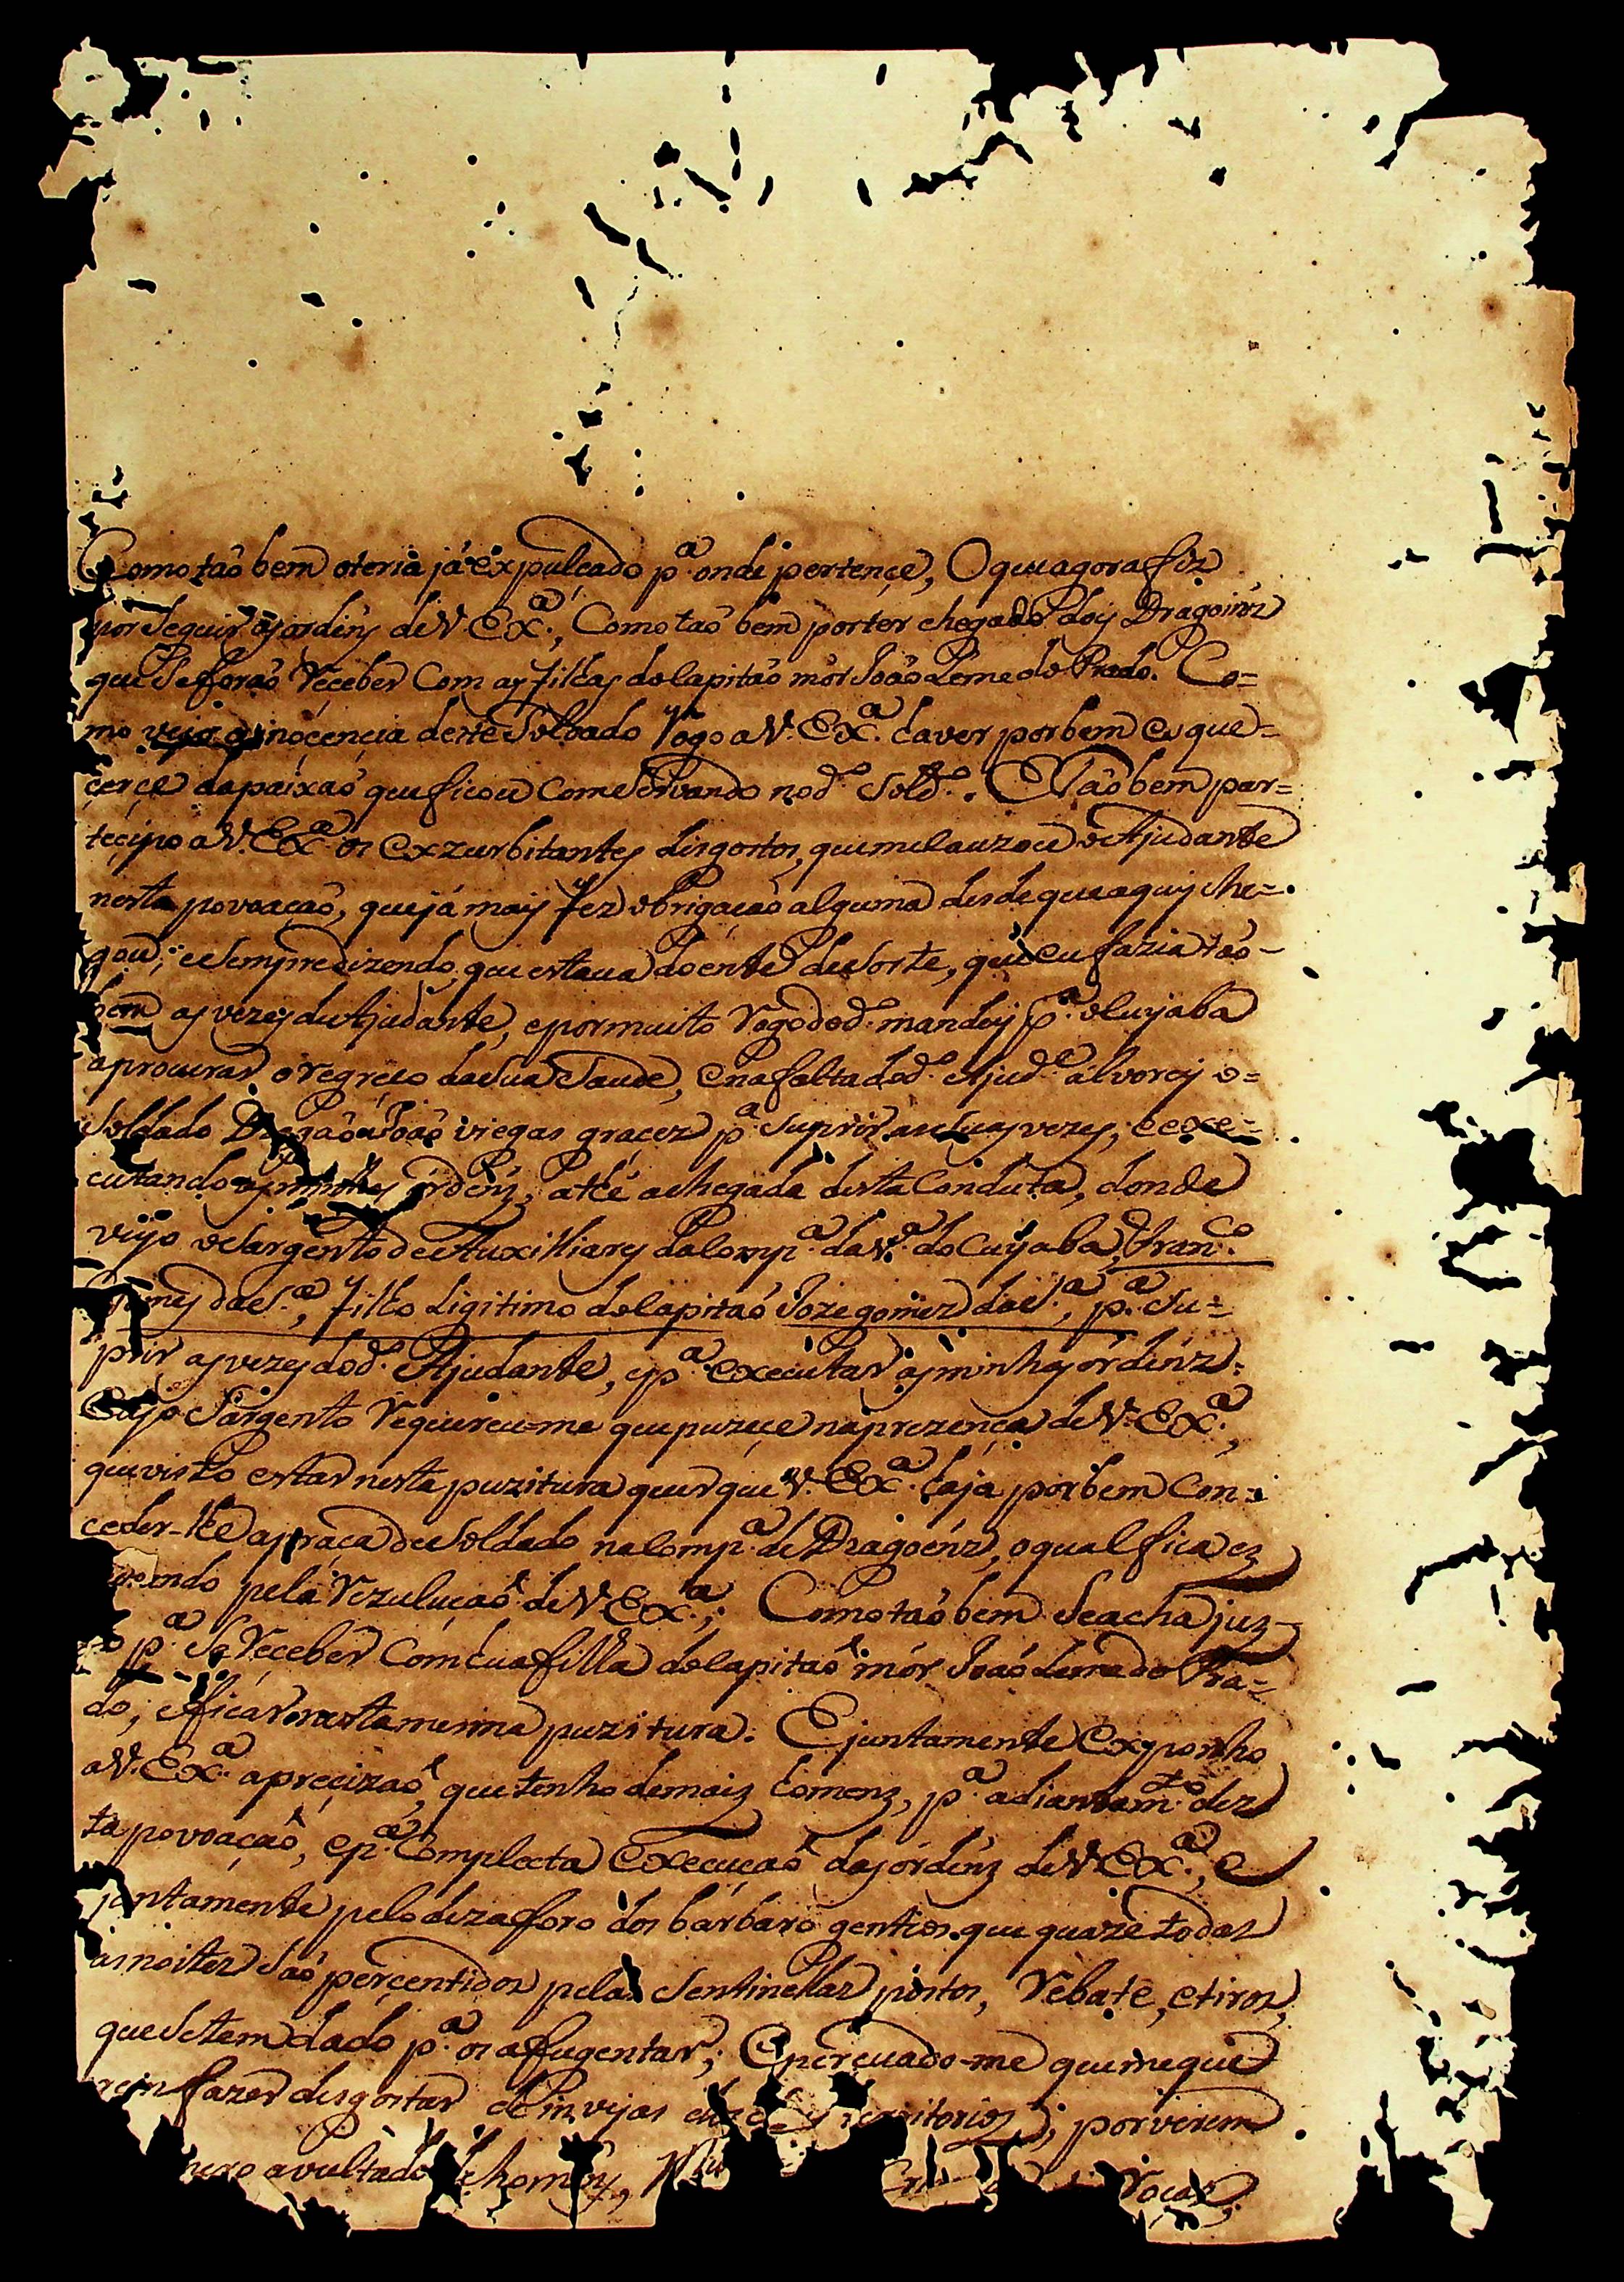 Como taõ bem oteria já expulcado p.ª onde pertençe, Oque agora fiz
por Seguir as ordens de V. Ex.ª, Como taõ bem porter chegado doys Dragoinz
que Se foraõ Receber Com as filhas do Capitaõ mór Joaõ Leme do Prado. Co=
mo vejo a innoçençia deste Soldado Rogo a V. Ex.ª haver por bem esque=
çerçe dapaixaõ que ficou Comservando no d.º Sold.º. E taõ bem par=
teçipo a V. Ex.ª os exzurbitantes disgostos, que me Cauzou o Ajudante
nesta povoaçaõ, que já mays fez obrigaçaõ alguma desde que aquy che=
gou; e Sempre dizendo, que estava doente de Sorte, que eu fazia taõ=
bem as vezes de Ajudante, e por muito Rogo do d.º mandey p.ª o Cuyaba
aprocurar o regreço da Sua Saude, e na falta do d.º Ajud.e alvorey o=
Soldado Dragaõ Joaõ viegas graçez p.ª Suprir as Suas vezes, e exe=
cutando as minhas ordens, athé achegada desta Conduta, donde
veyo o Sargento de Auxilliares da Comp.ª da V.ª do Cuyaba, Fran.co
gomes da S.ª, filho Ligitimo do Capitaõ Joze gomez da S.ª, p.ª Su=
prir as vezes do d.º Ajudante, e p.ª executar as minhas órdinz.
Cujo Sargento Requereu-me que puzeçe na prezença de V. Ex.ª,
que visto estar nesta puzitura quer que V. Ex.ª haja por bem Con=
ceder-lhe a praça de Soldado na Comp.ª de Dragoénz, o qual fica ez
perando pela Rezuluçaõ de V. Ex.ª; Como taõ bem Se acha juz=
to p.ª Se Receber Com hua filha do Capitaõ mór Joaõ Leme do Pra=
do; e ficar nesta mesma puzitura. E juntamente Exponho
a V. Ex.ª apreçizaõ, que tenho de maiz homenz, p.ª adiantam.to dez
ta povoaçaõ, e p.ª Complecta Execuçaõ das órdenz de V. Ex.ª, e
juntamente pelo dezaforo dos bárbaro gentios que quaze todas
as noites Saõ perçentidos pelas Sentinellas postos, Rebate, e tiros,
que Se tem dado p.ª os afugentar; E perçuado-me que me que
rem fazer disgostar de invejas territorios; por virem
avultado de homens, Rocas,